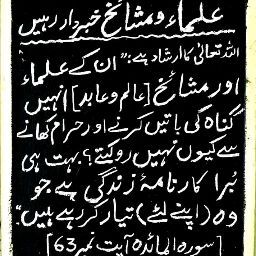 علماء و مشائخ خبردار رہیں
اللہ تعالیٰ کا ارشاد ہے: "ان کے علماء
اور مشائخ [عالم و عابد] انہیں
گناہ کی باتیں کرنے اور حرام کھانے
سے کیوں نہیں روکتے؟ بہت ہی
بُرا کارنامۂ زندگی ہے جو
وہ (اپنے لئے) تیار کر رہے ہیں"
[سورہ المائدہ آیت نمبر 63]